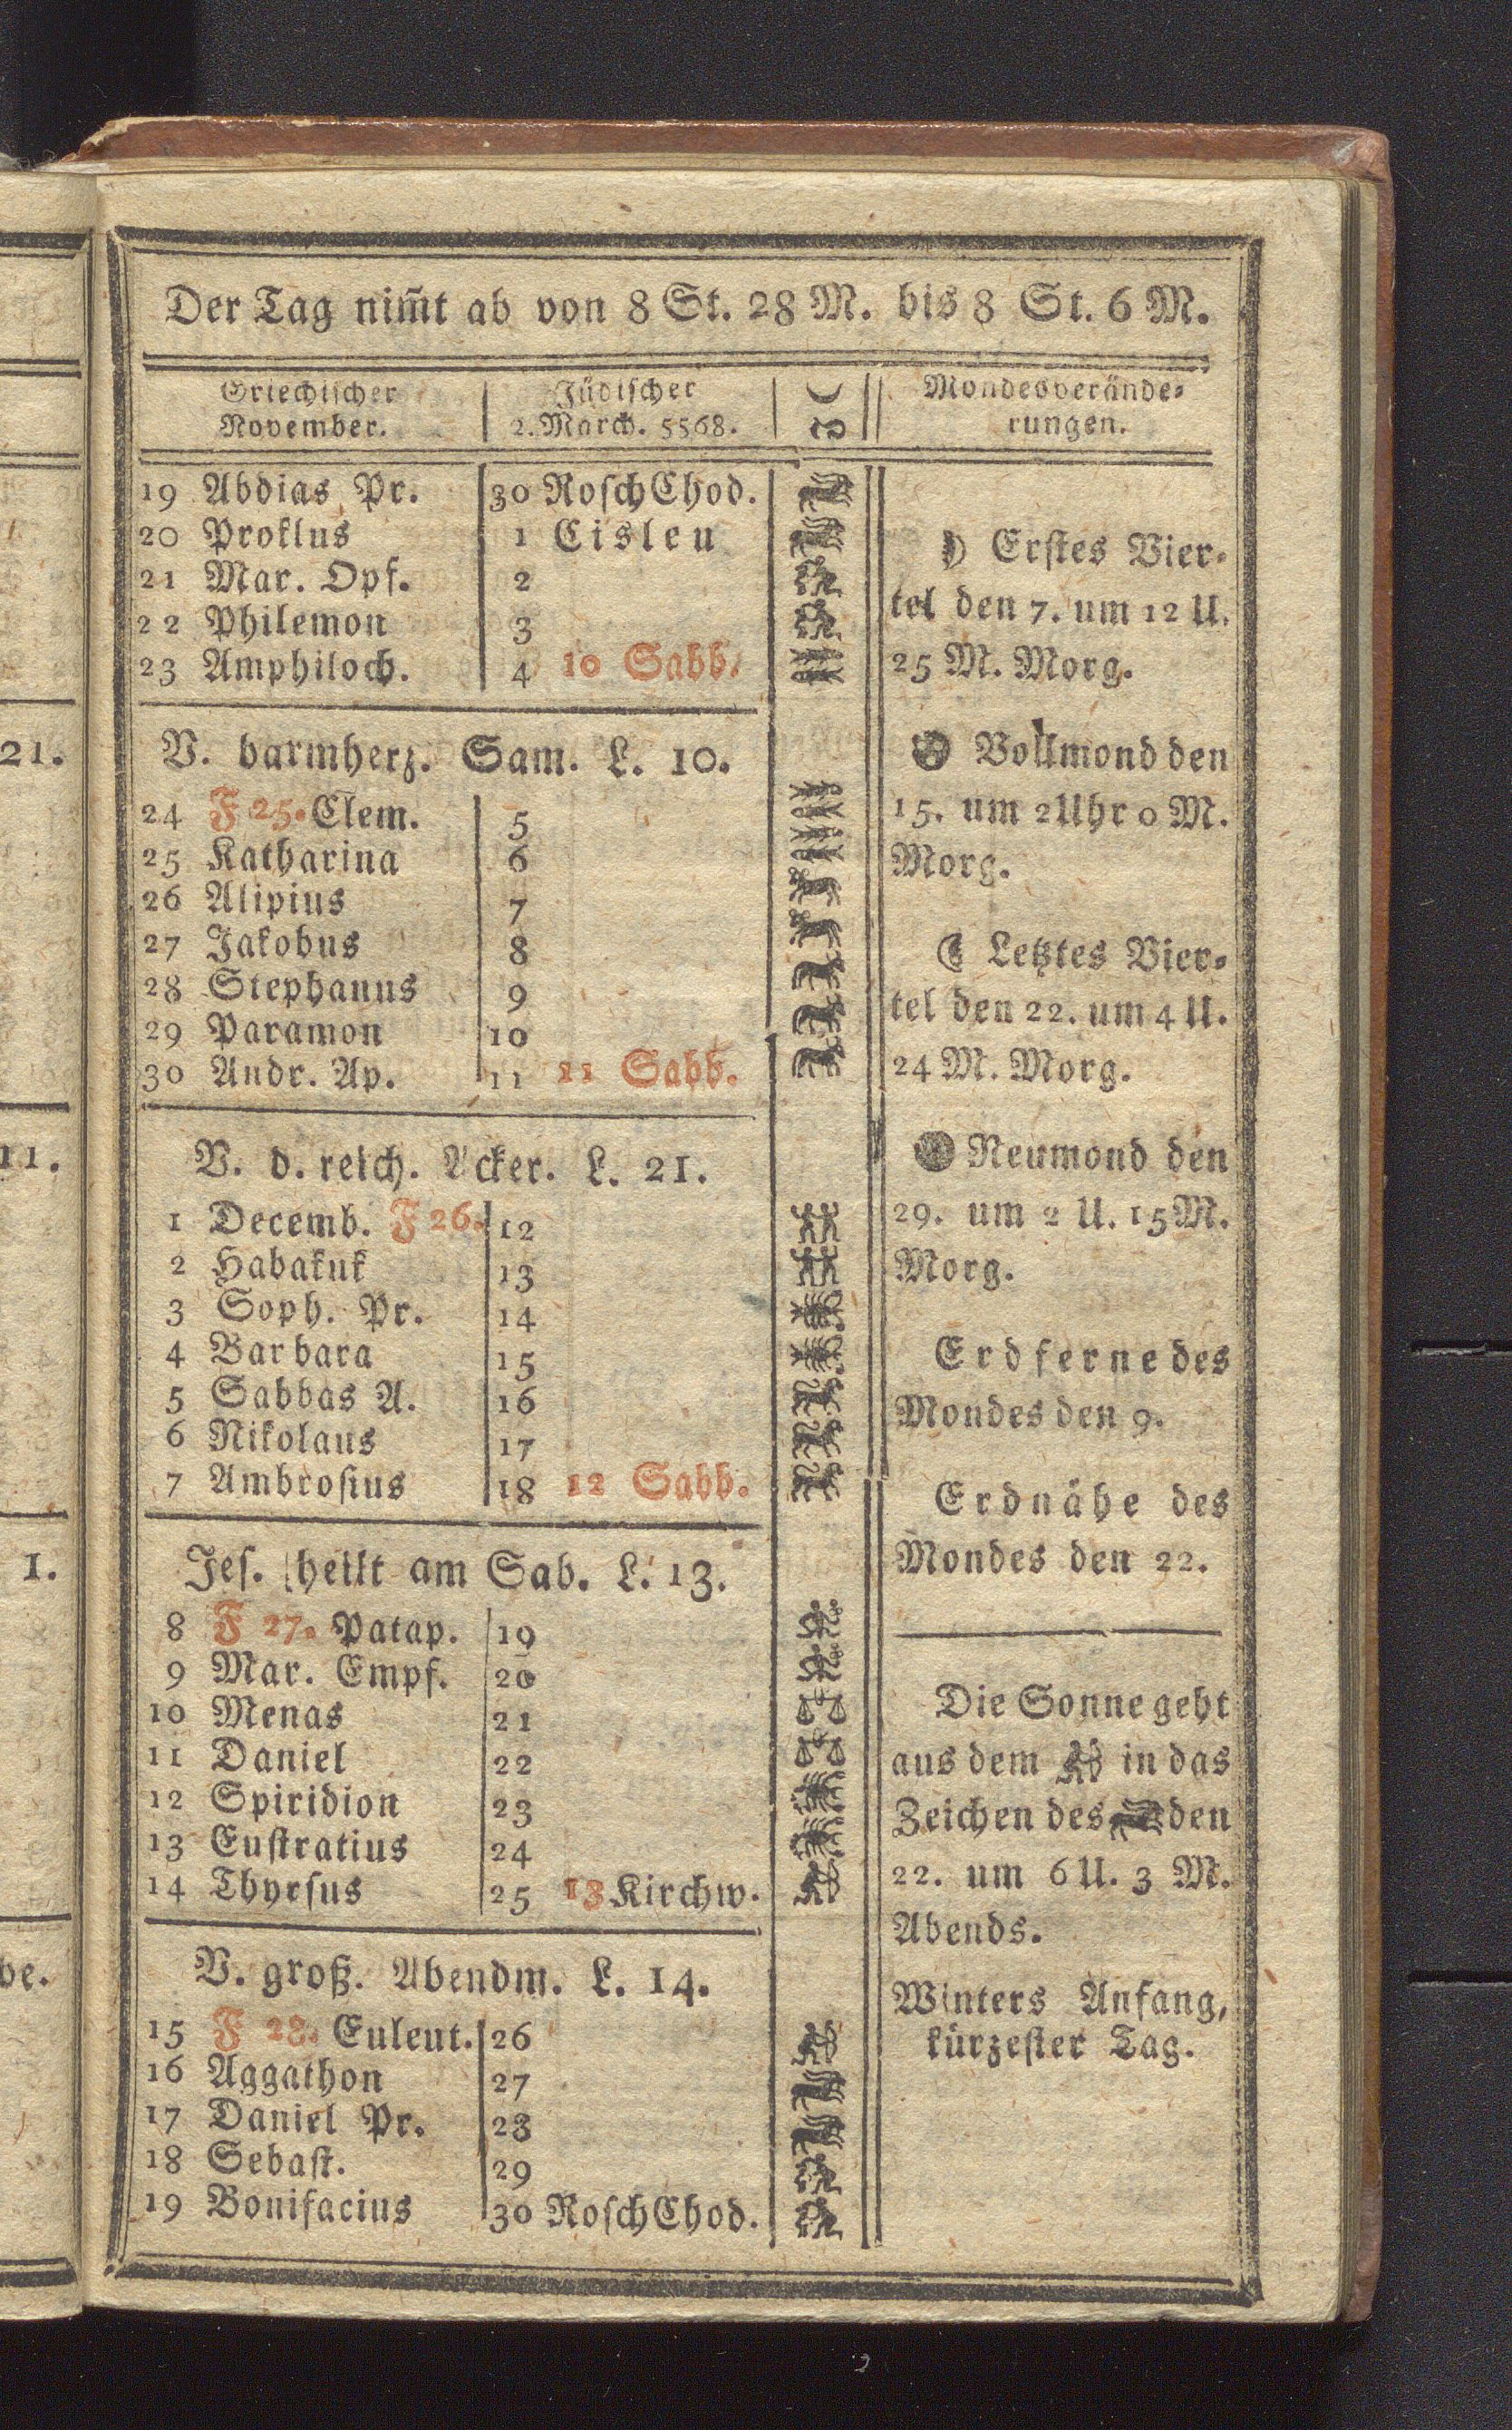 Der Tag nim̄t ab von 8 St. 28 M. bis 8 St. 6 M.
Griechischer November. | Jüdischer 2. March. 5568. | ☾ | Mondesverände-
rungen.
19 Abdias Pr. 30 Roſch Chod.
20 Proklus 1 Cisleu
21 Mar. Opf. 2
22 Philemon 3
23 Amphiloch. 4 10 Sabb.
V. barmherz. Sam. L. 10.
24 F 25. Clem. 5
25 Katharina 6
26 Alipius 7
27 Jakobus 8
28 Stephanus 9
29 Paramon 10
30 Andr. Ap. 11 11 Sabb.
V. d. reich. Acker. L. 21.
1 Decemb. F 26. 12
2 Habakuk 13
3 Soph. Pr. 14
4 Barbara 15
5 Sabbas A. 16
6 Nikolaus 17
7 Ambroſius 18 12 Sabb.
Jeſ. heilt am Sab. L. 13.
8 F 27. Patap. 19
9 Mar. Empf. 20
10 Menas 21
11 Daniel 22
12 Spiridion 23
13 Euſtratius 24
14 Thyrſus 25 13 Kirchw.
V. groß. Abendm. L. 14.
15 F 28. Euleut. 26
16 Aggathon 27
17 Daniel Pr. 28
18 Sebaſt. 29
19 Bonifacius 30 Roſch Chod.
☽ Erſtes Vier-
tel den 7. um 12 U.
25 M. Morg.
Vollmond den
15. um 2 Uhr 0 M.
Morg.
☾ Letztes Vier-
tel den 22. um 4 U.
24 M. Morg.
Neumond den
29. um 2 U. 15 M.
Morg.
Erdferne des
Mondes den 9.
Erdnähe des
Mondes den 22.
Die Sonne geht
aus dem ♐ in das
Zeichen des ♑ den
22. um 6 U. 3 M.
Abends.
Winters Anfang,
kürzeſter Tag.
21.
11.
1.
be.